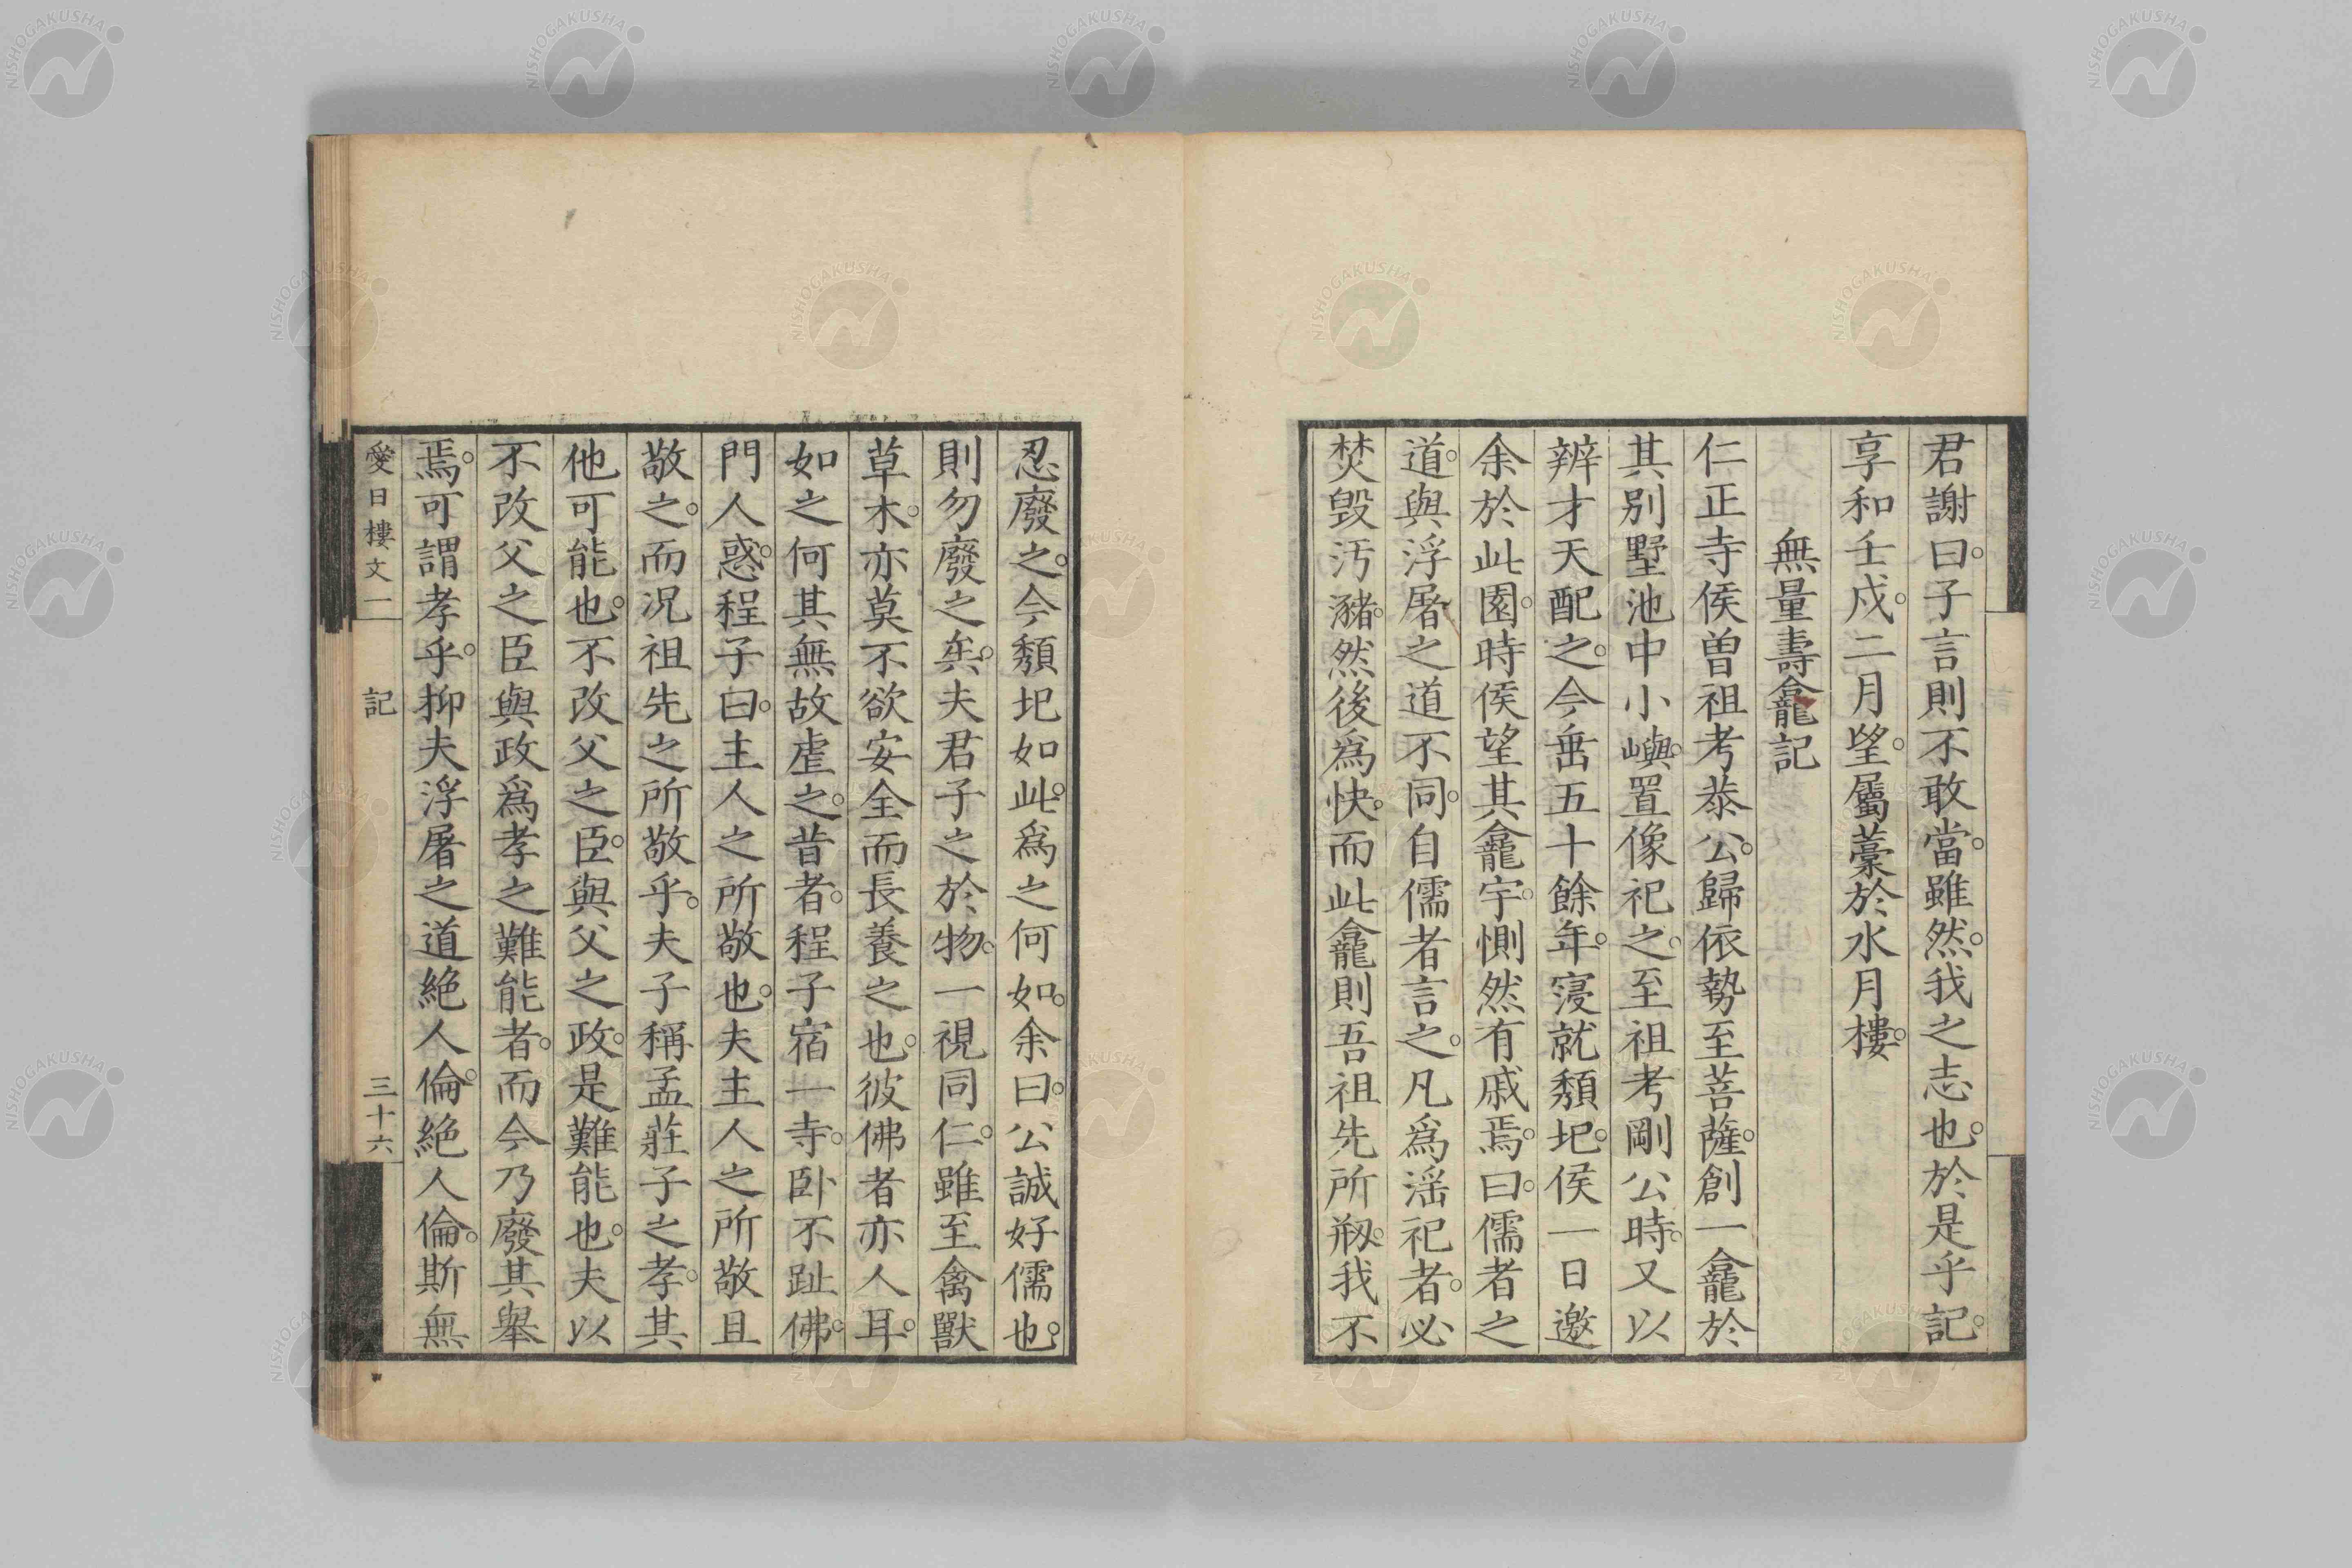 君謝曰。子言則不敢當。雖然。我之志也。於是乎記。
享和壬戌。二月望。屬藁於水月樓。
無量壽龕記
仁正寺侯曽祖考恭公。歸依勢至菩薩。創一龕於
其别墅池中小嶼。置像祀之。至祖考剛公時。又以
辨才天配之。今垂五十餘年。寖就頽圯。侯一日邀
余於此園。時侯望其龕宇。惻然有戚焉。曰。儒者之
道。與浮屠之道不同。自儒者言之。凡爲淫祀者。必
焚毁汚瀦。然後爲快。而此龕則吾祖先所剏。我不
忍廢之。今頽圯如此。爲之何如。余曰。公誠好儒也。
則勿廢之矣。夫君子之於物。一視同仁。雖至禽獸
草木。亦莫不欲安全而長養之也。彼佛者亦人耳。
如之何其無故虐之。昔者。程子宿一寺。卧不趾佛。
門人惑。程子曰。主人之所敬也。夫主人之所敬且
敬之。而况祖先之所敬乎。夫子稱孟莊子之孝。其
他可能也。不改父之臣。與父之政。是難能也。夫以
不改父之臣與政爲孝之難能者。而今乃廢其舉
焉。可謂孝乎。抑夫浮屠之道絶人倫。絶人倫。斯無
愛日樓文一
記
三十六
NISHOGAKUSHA